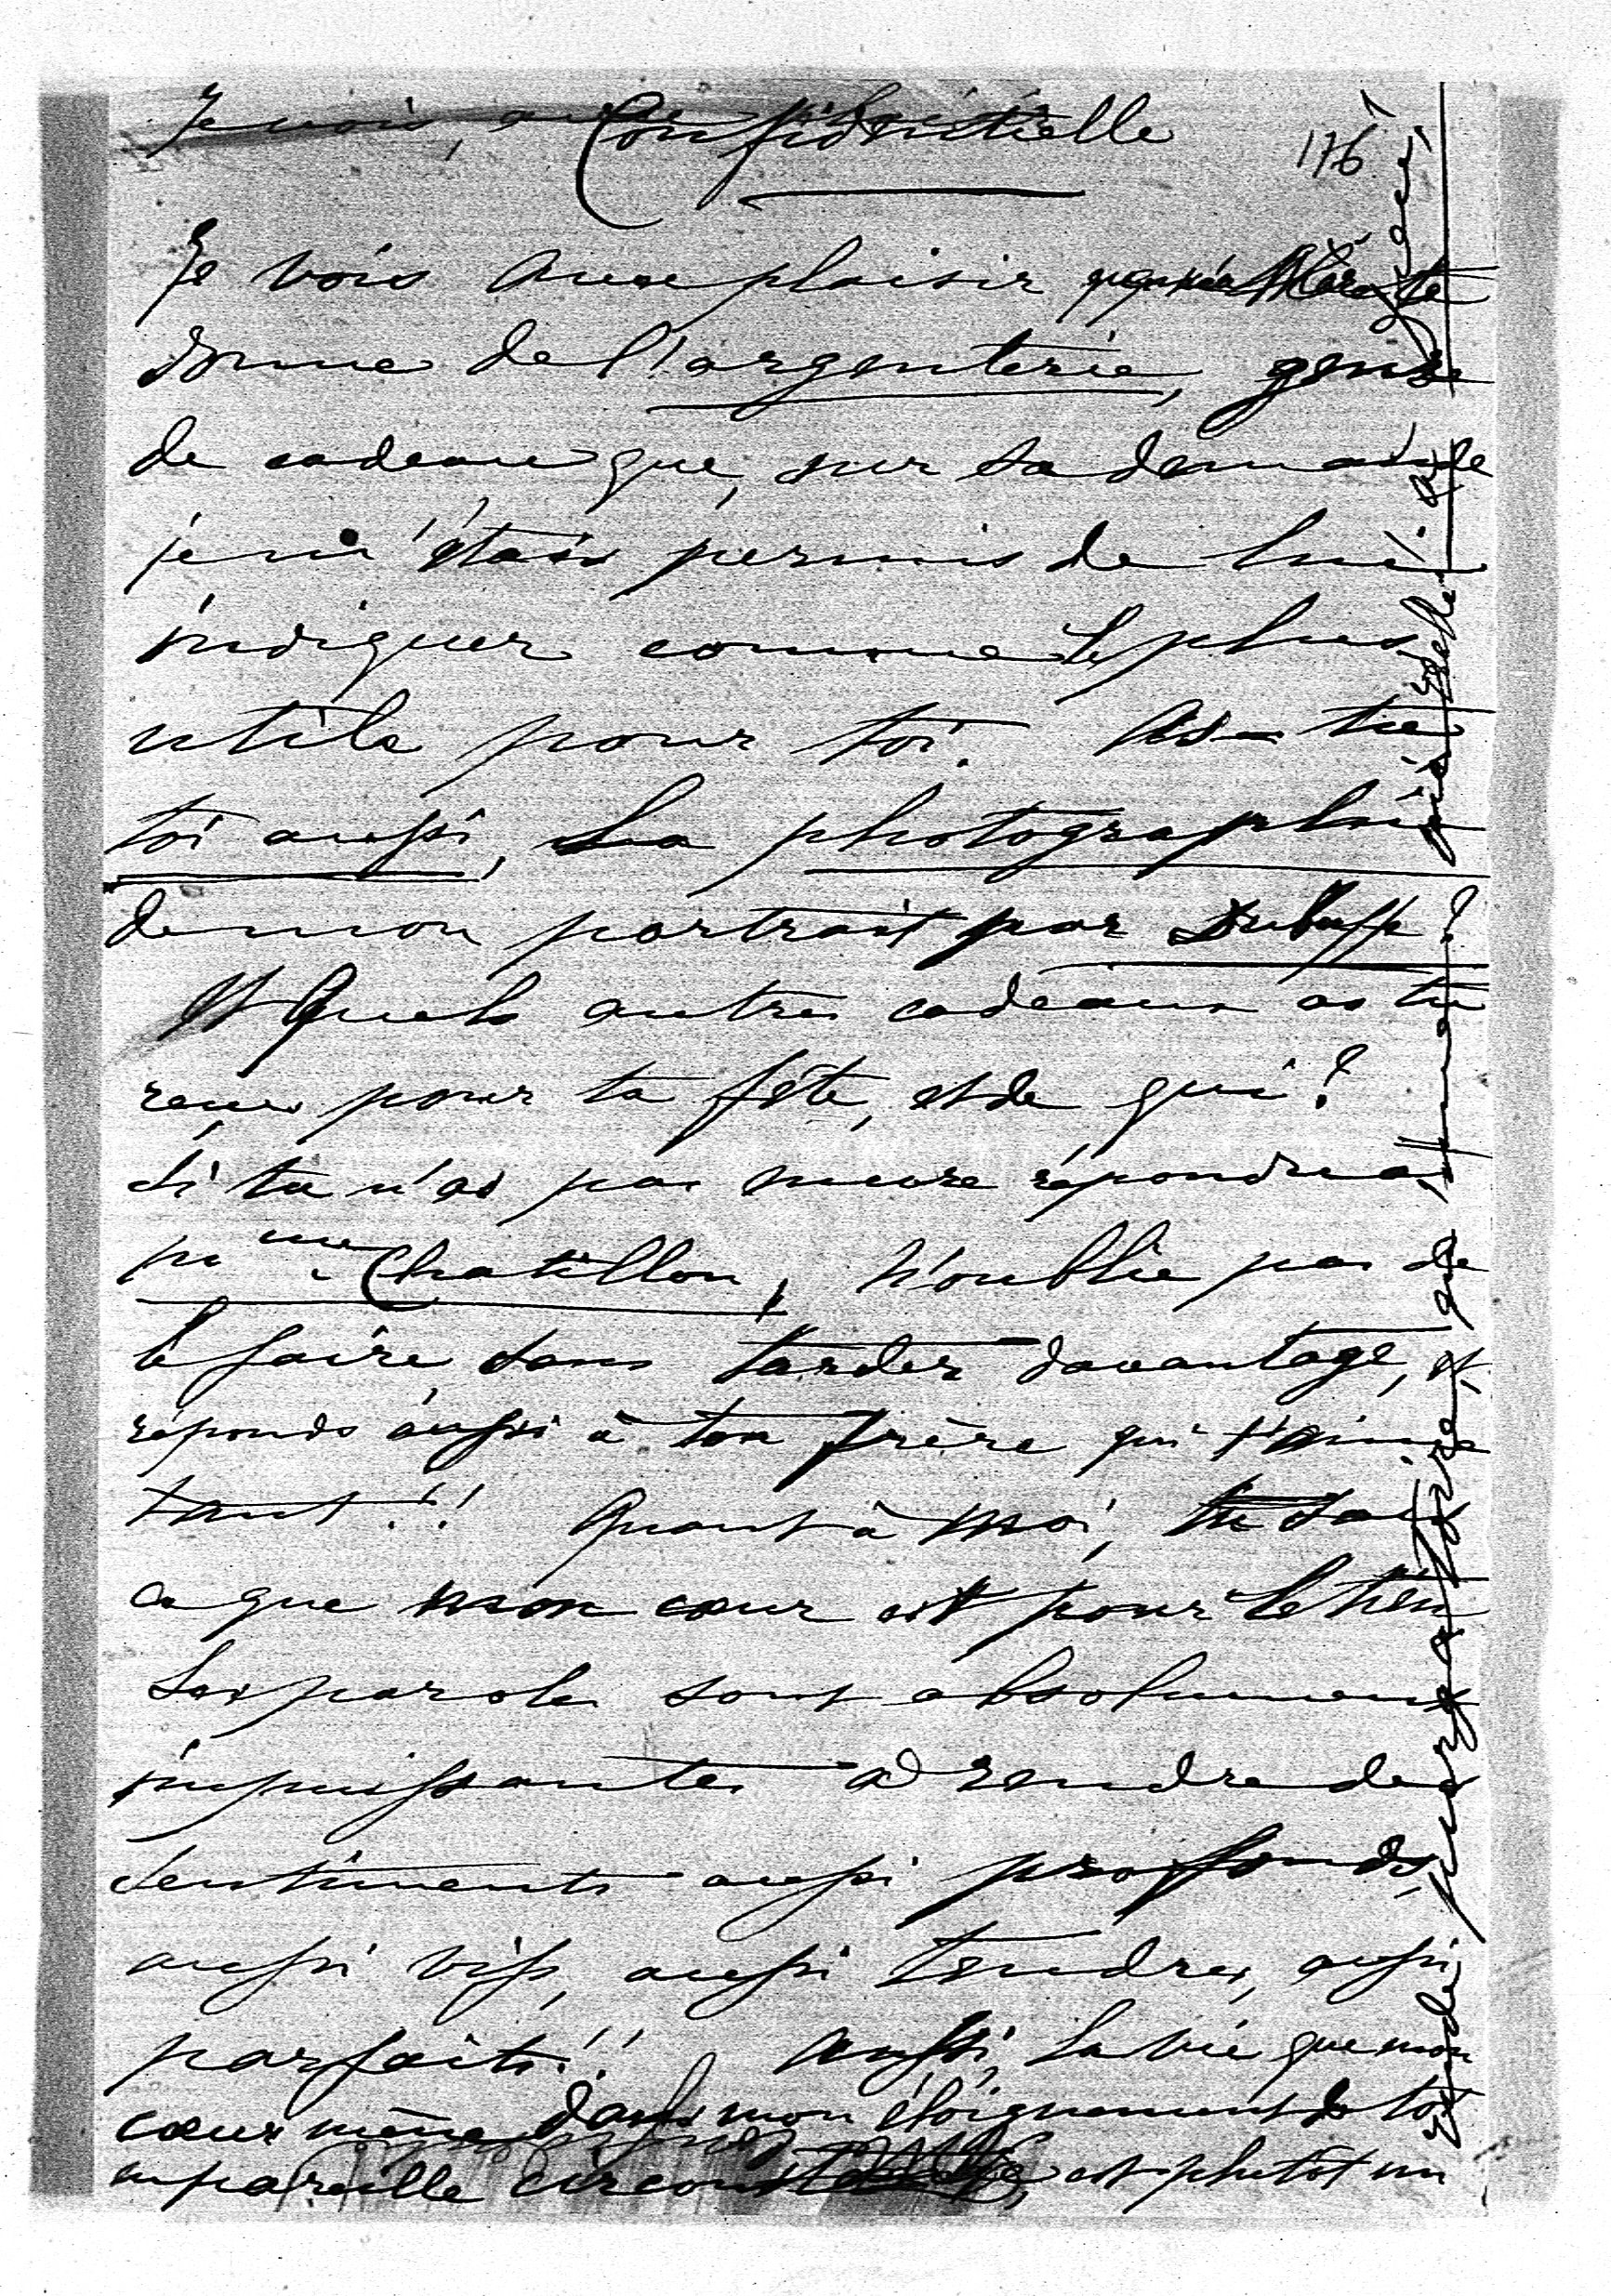 Je vois, avec
Confidentielle
176
Je vois avec plaisir que ta Mère te
donne de l'argenterie, genre
de cadeau que, sur sa demande
je m'étais permis de lui
indiquer comme le plus
utile pour toi. As-tu
toi aussi, la photographie
de mon portrait par Dubuffe?
Et Quels autres cadeaux as tu
reçus pour ta fête, et de qui?
Si tu n'as pas encore répondu à
Mme Chatillon, n'oublie pas de
le faire sans tarder davantage, et
réponds aussi à ton frère qui t'aime
tant!! Quant à moi, tu sais
ce que mon cœur est pour le tien
Les paroles sont absolument
impuissantes à rendre des
sentiments aussi profonds,
aussi vifs, aussi tendres, aussi
parfaits!! Aussi, la vie que mon
cœur mène dans mon éloignement de toi
en pareille circonstance, est plutôt un
purgatoire, et